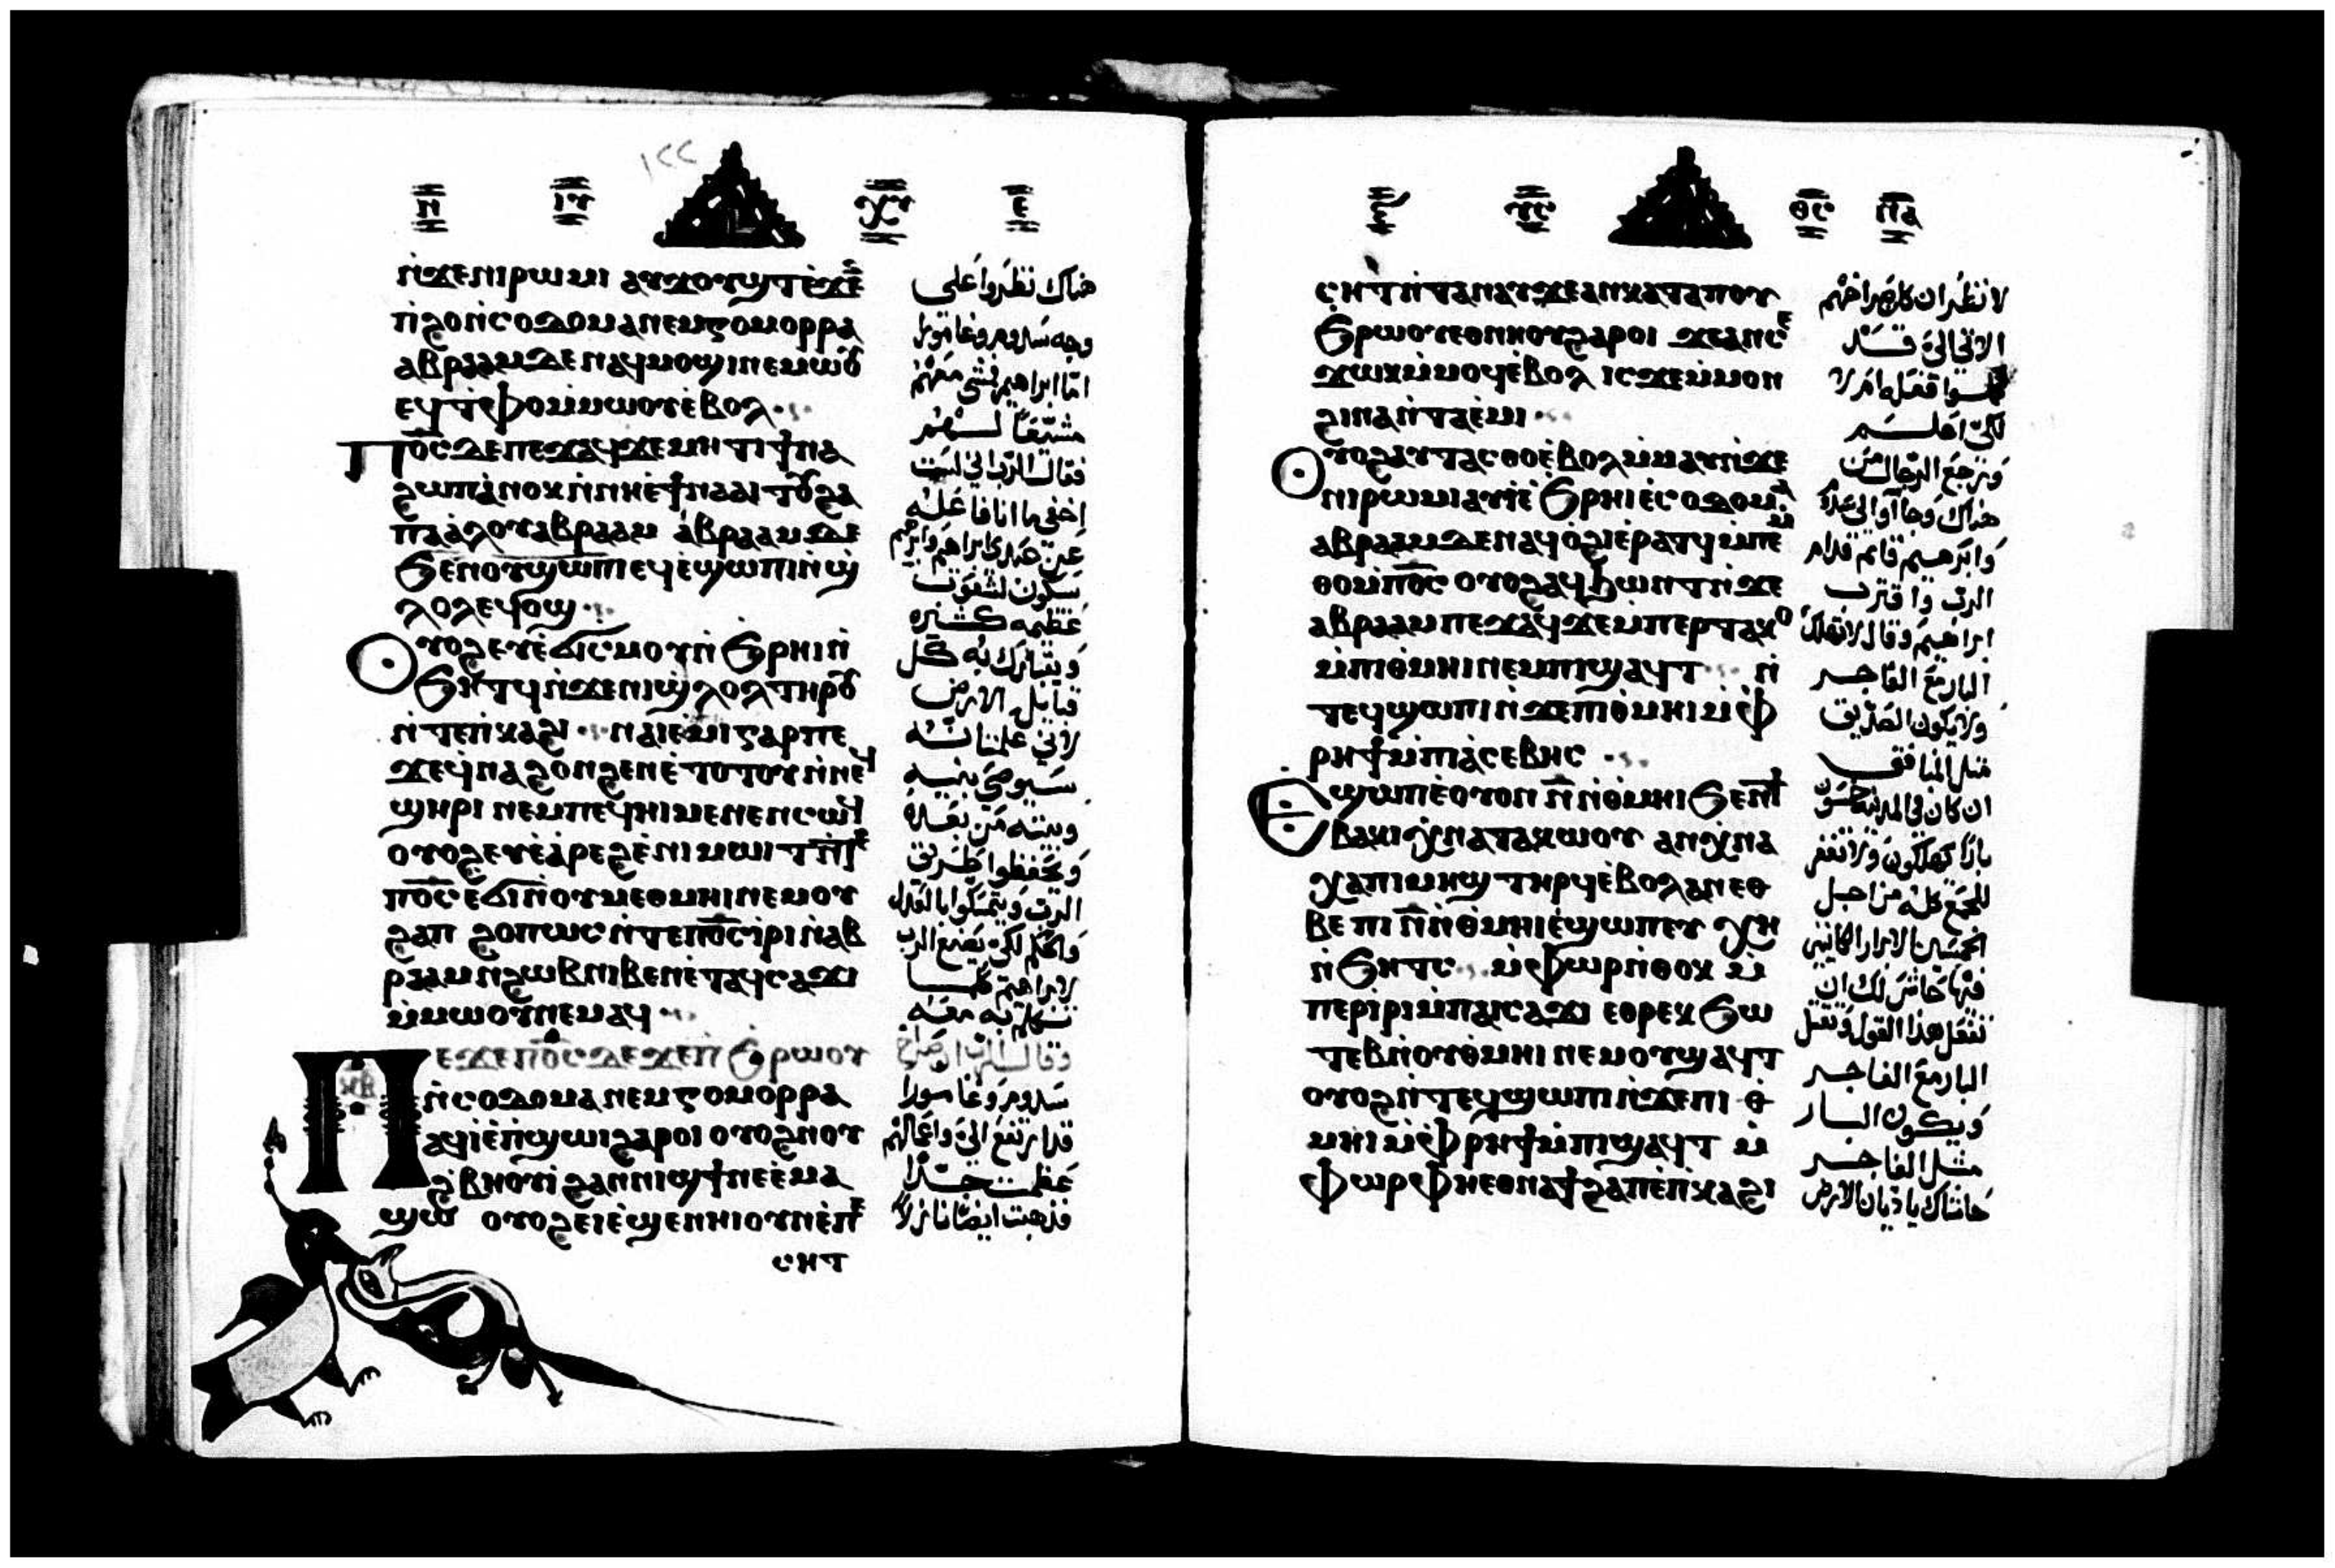 ⲏ ⲓⲩ ⲭⲩ ⲉ
١٢٢
ⲛ̇ϫⲉⲛⲓⲣⲱⲙⲓ ⲁⲩϫⲟⲩϣⲧⲉ̇ϫⲉⲛ
ⲡ̇ϩⲟⲛ̇ⲥⲟⲇⲟⲙⲁⲛⲉⲙⲅⲟⲙⲟⲣⲣⲁ
ⲁⲃⲣⲁⲁⲙⲇⲉ ⲛⲁϥⲙⲟϣⲓⲛⲉⲙⲱⲟⲩ
ⲉϥⲧ̇ⲫⲟⲙ̇ⲙⲱⲟⲩⲉ̇ⲃⲟⲗ
ⲡⲟ̅ⲥ̅ⲇⲉⲡⲉϫⲁϥϫⲉⲙⲏⲧⲓϯⲛⲁ
ϩⲱⲡⲁ̇ⲛⲟⲕⲛ̇ⲛⲏⲉ̇ϯⲛⲁⲁⲓⲧⲟⲩϩⲁ
ⲡⲁⲁ̇ⲗⲟⲩⲁⲃⲣⲁⲁⲙ ⲁ̇ⲃⲣⲁⲁⲙⲇⲉ
ϧⲉⲛⲟⲩϣⲱⲡⲓ ⲉϥⲉ̇ϣⲱⲡⲓⲛ̇ϣ̇
ⲗⲟⲗⲉϥⲟϣ
ⲟⲩⲟϩⲉⲩⲉ̇ϭⲓⲥⲙⲟⲩⲛ̇ ϧⲣⲏⲓⲛ̇
ϧⲏⲧϥⲛ̇ϫⲉⲛⲓϣ̇ⲗⲟⲗⲧⲏⲣⲟⲩ
ⲛ̇ⲧⲉⲡ̇ⲕⲁϩⲓ ⲛⲁⲓⲉ̇ⲙⲓⲅⲁⲣⲡⲉ
ϫⲉϥ̇ⲛⲁϩⲟⲛϩⲉⲛⲉ̇ⲧⲟⲧⲟⲩⲛ̇ⲛⲉϥ
ϣⲏⲣⲓ ⲛⲉⲙⲡⲉϥⲏⲓⲙⲉⲛⲉⲛⲥⲱϥ
ⲟⲩⲟϩⲉⲩⲉ̇ⲁ̇ⲣⲉϩⲉ̇ⲛⲓⲙⲱⲓⲧⲛ̇ⲧⲉ
ⲡⲟ̅ⲥ̅ⲉϭⲓⲛ̇ⲟⲩⲙⲉⲑⲙⲏⲓⲛⲉⲙⲟⲩ
ϩⲁⲡ ϩⲟⲡⲱⲥⲛ̇ⲧⲉⲡⲟ̅ⲥ̅ⲓ̇ⲣⲓⲛ̇ⲁⲃ
ⲣⲁⲁⲙⲛϩⲱⲃⲛⲓⲃⲉⲛⲉ̇ⲧⲁϥⲥⲁϫⲓ
ⲙ̇ⲙⲱⲟⲩⲛⲉⲙⲁϥ
ⲡⲉϫⲉⲡⲟ̅ⲥ̅ⲇⲉϫⲉⲡ ϧⲣⲱⲟⲩ
ⲛ̇ⲥⲟⲇⲟⲙⲁⲛⲉⲙⲅⲟⲙⲟⲣⲣⲁ
ⲁϥⲓ̇ⲉ̇ⲡ̇ϣⲱⲓϩⲁⲣⲟⲓ ⲟⲩⲟϩⲛⲟⲩ
ϩ̇ⲃⲏⲟⲩⲓ̇ ϩⲁⲛⲛⲓϣϯⲛⲉⲉ̇ⲙⲁ
ϣⲱ ⲟⲩⲟϩⲉⲓⲉ̇ϣⲉⲛⲏⲓⲟⲩⲛⲉ̇ⲡⲉ
ⲥⲏⲧ
هناك نظروا على
وجه سدوم وغامورا
اما ابراهيم فمشى معهم
مشيعا لهم
فقال الرب اني لست
اخفي ما انا فاعله
عن عبدي ابراهيم وابراهيم
سيكون لشعوب
عظيمه كثيره
ويتبارك به كل
قبايل الارض
لاني علمنا انه
سيوصي بنيه
وبيته من بعده
ويحفظوا طريق
الرب ويتمسكوا بالعدل
والحكم لكي يصنع الرب
لابراهيم كلما
تكلم به معه
وقال الرب ان صراخ
سدوم وغامورا
قد ارتفع الي واعمالهم
عظمت جدا
فذهبت ايضا نازلا
ⲩⲥ ⲑⲥ ⲡⲁ
ⲥⲏⲧⲛ̇ⲧⲁⲛⲁⲩϫⲉⲁⲛⲕⲁⲧⲁⲡⲟⲩ
ϧⲣⲱⲟⲩⲉⲑⲛⲏⲟⲩϩⲁⲣⲟⲓ ϫⲉⲁⲛⲥⲉ
ϫⲱⲕⲙ̇ⲙⲟϥⲉ̇ⲃⲟⲗ ⲓⲥϫⲉⲙ̇ⲙⲟⲛ
ϩⲓⲛⲁⲛ̇ⲧⲁⲉ̇ⲙⲓ
ⲟⲩⲟϩⲁⲩⲧⲁⲥⲑⲟⲉ̇ⲃⲟⲗⲙ̇ⲙⲁⲩⲛ̇ϫⲉ
ⲛⲓⲣⲱⲙⲓⲁⲩⲓ̇ⲉ̇ ϧⲣⲏⲓⲉ̇ⲥⲟⲇⲟⲙⲁ
ⲁⲃⲣⲁⲁⲙⲇⲉⲛⲁϥⲟ̇ϩⲓⲉ̇ⲣⲁⲧϥⲙ̇ⲡⲉ
ⲑⲟⲙ̇ⲡⲟ̅ⲥ̅ ⲟⲩⲟϩⲁϥϧⲱⲛⲧⲛ̇ϫⲉ
ⲁⲃⲣⲁⲁⲙⲡⲉϫⲁϥϫⲉⲙ̇ⲡⲉⲣⲧⲁⲕⲟ
ⲙ̇ⲡⲓⲑ̇ⲙⲏⲓⲛⲉⲙⲡⲓϣⲁϥⲧ ⲛ̇
ⲧⲉϥϣⲱⲡⲓⲛ̇ϫⲉⲡⲓⲑ̇ⲙⲏⲓⲙ̇ⲫ̇
ⲣⲏϯⲙ̇ⲡⲓⲁ̇ⲥⲉⲃⲏⲥ
ⲉϣⲱⲡⲉ̇ⲟⲩⲟⲛ ⲛ̅ⲛ̇ⲑ̇ⲙⲏⲓϧⲉⲛϯ
ⲃⲁⲕⲓⲭ̇ⲛⲁⲧⲁⲕⲱⲟⲩ ⲁⲛⲭ̇ⲛⲁ
ⲭⲁⲡⲓⲙⲏϣⲧⲏⲣϥⲉ̇ⲃⲟⲗⲁⲛⲉⲑ
ⲃⲉ ⲡⲓⲛ̅ⲛ̇ⲑ̇ⲙⲏⲓⲉ̇ϣⲱⲡⲉⲩ ⲭⲏ
ⲛ̇ϧⲏⲧⲥ ⲙ̇ⲫⲱⲣⲛ̇ⲑⲟⲕ ⲙ̇
ⲡⲉⲣⲓ̇ⲣⲓⲙ̇ⲡⲁⲓⲥⲁϫⲓ ⲉⲑⲣⲉⲕϧⲱ
ⲧⲉⲃⲛ̇ⲟⲩⲑ̇ⲙⲏⲓ ⲛⲉⲙⲟⲩϣⲁϥⲧ
ⲟⲩⲟϩⲛ̇ⲧⲉϥϣⲱⲡⲓⲛ̇ϫⲉⲡⲓ ⲑ̇
ⲙⲏⲓⲙ̇ⲫ̇ⲣⲏϯⲙ̇ⲡⲓϣⲁϥⲧ ⲙ̇
ⲫⲱⲣⲫⲏⲉⲑⲛⲁϯϩⲁⲡⲉ̇ⲡ̇ⲕⲁϩⲓ
لانظر ان كان صراخهم
الاتي الي قد
فعلوا ام لا
لكي اعلم
ورجع الرجال من
هناك وجاوا الى سدوم
وابرهيم قايم قدام
الرب واقترب
ابراهيم وقال لا تهلك
البار مع الفاجر
ولا يكون الصديق
مثل المنافق
ان كان في المدينه خمسون
بارا تهلكهم ولا تغفر
للجمع كله من اجل
الخمسين الابرار الكاينين
فيها حاش لك ان
تفعل هذا القول وتقتل
البار مع الفاجر
ويكون البار
مثل الفاجر
حاشاك يا ديان الارض